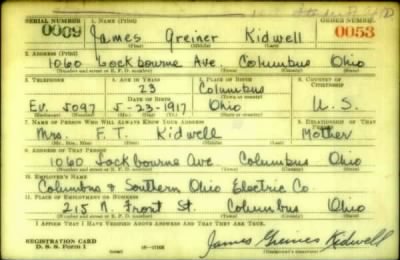 SERIAL NUMBER 1. NAME (Print) ORDER NUMBER
0009 James Greiner Kidwell 0053
(First) (Middle) (Last)
2. ADDRESS (Print)
1060 Lockbourne Ave. Columbus Ohio
(Number and street or R. F. D. number) (Town) (County) (State)
3. TELEPHONE 4. AGE IN YEARS 5. PLACE OF BIRTH 6. COUNTRY OF CITIZENSHIP
23 Columbus
DATE OF BIRTH (Town or county)
Ev. 5097 5-23-1917 Ohio U.S.
(Exchange) (Number) (Mo.) (Day) (Yr.) (State or country)
7. NAME OF PERSON WHO WILL ALWAYS KNOW YOUR ADDRESS 8. RELATIONSHIP OF THAT PERSON
Mrs. F. T. Kidwell Mother
(Mr., Mrs., Miss) (First) (Middle) (Last)
9. ADDRESS OF THAT PERSON
1060 Lockbourne Ave. Columbus Ohio
(Number and street or R. F. D. number) (Town) (County) (State)
10. EMPLOYER'S NAME
Columbus & Southern Ohio Electric Co.
11. PLACE OF EMPLOYMENT OR BUSINESS
215 N. Front St. Columbus Ohio
(Number and street or R. F. D. number) (Town) (County) (State)
I AFFIRM THAT I HAVE VERIFIED ABOVE ANSWERS AND THAT THEY ARE TRUE.
REGISTRATION CARD
D. S. S. Form 1 James Greiner Kidwell